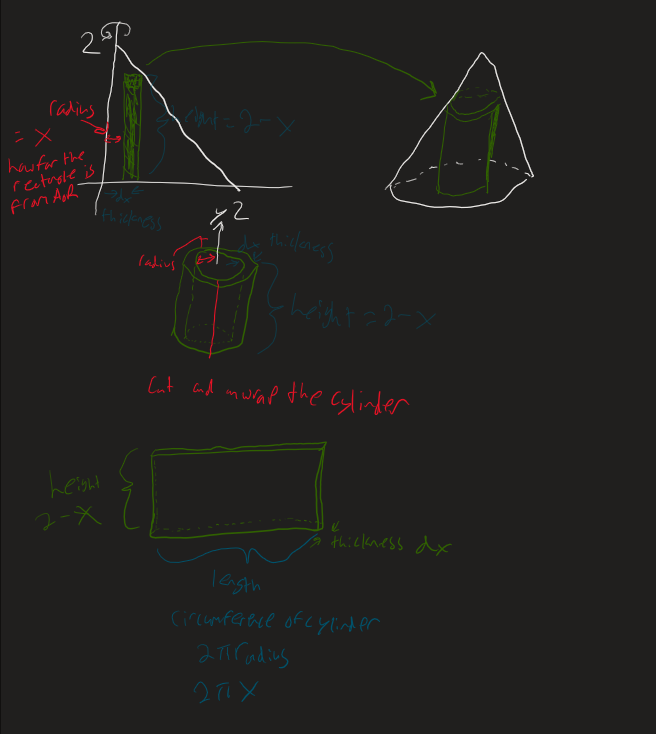 2
radius
= x
how far the
rectangle is
from AOR
height = 2 - x
dx
thickness
2
y
radius
dx thickness
height = 2 - x
Cut and unwrap the cylinder
height
2 - x
thickness dx
length
circumference of cylinder
2π radius
2π x